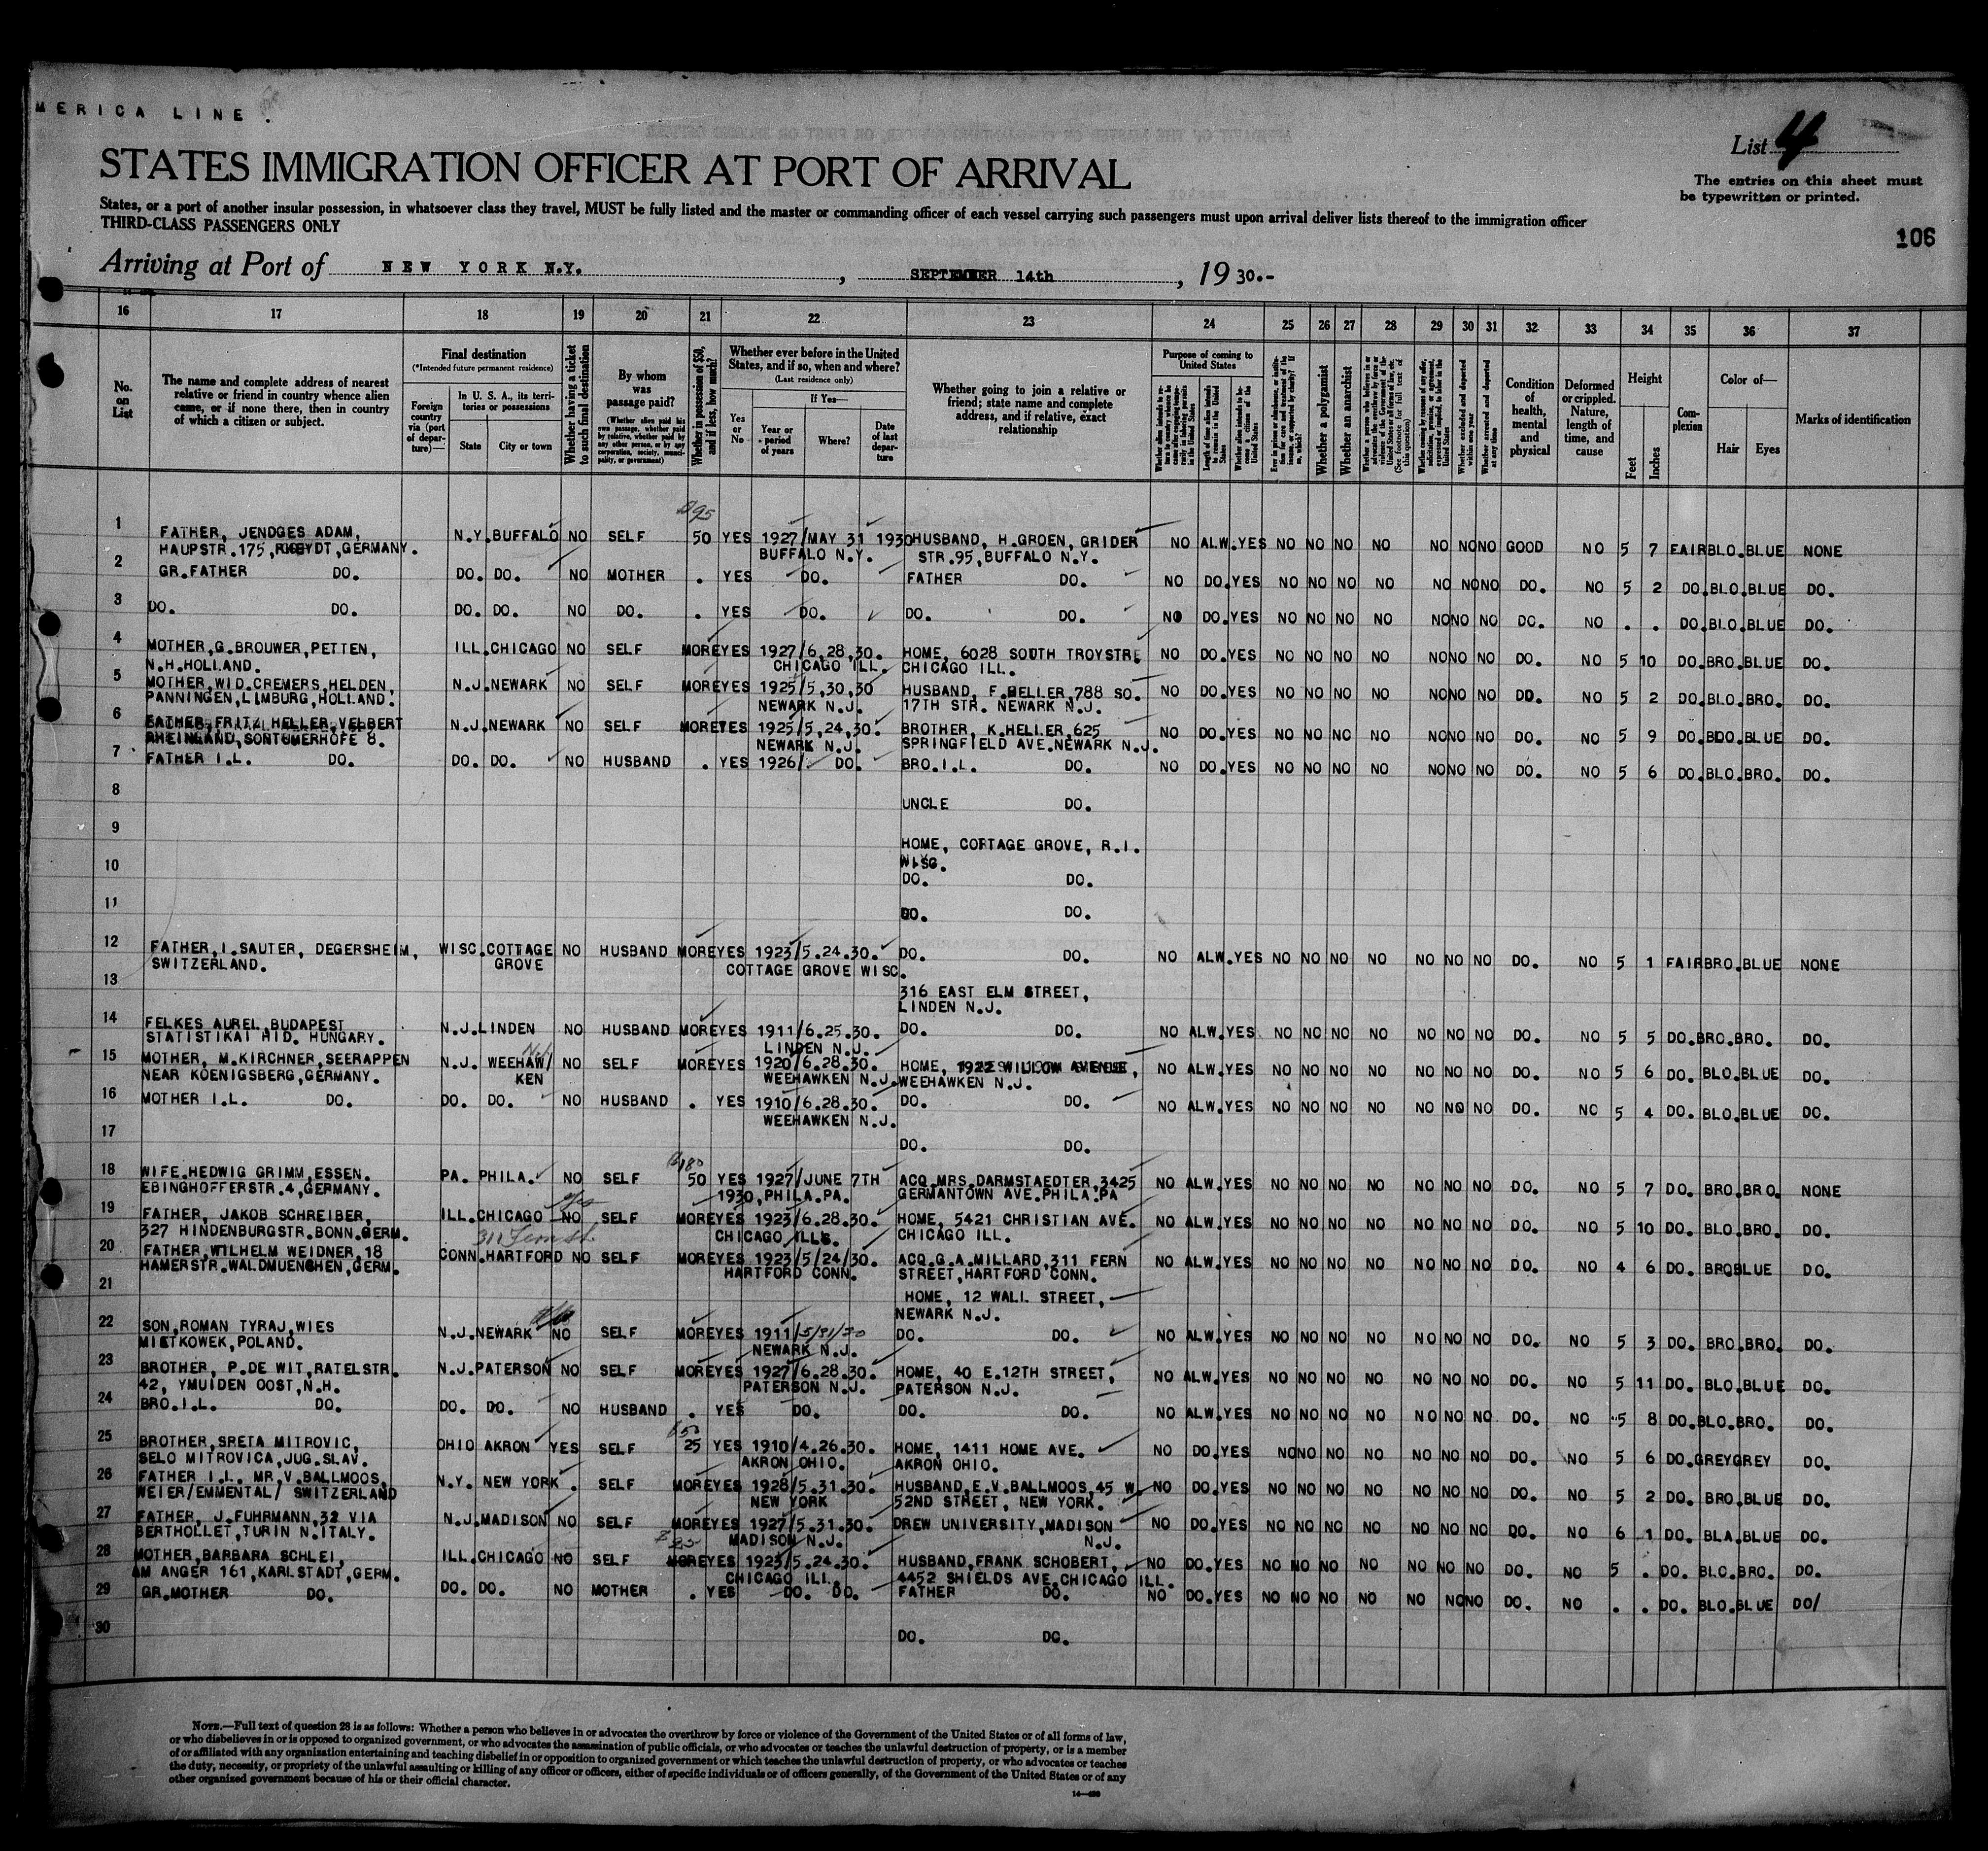 MERICA LINE.
List 4
STATES IMMIGRATION OFFICER AT PORT OF ARRIVAL
The entries on this sheet must
be typewritten or printed.
States, or a port of another insular possession, in whatsoever class they travel, MUST be fully listed and the master or commanding officer of each vessel carrying such passengers must upon arrival deliver lists thereof to the immigration officer
THIRD-CLASS PASSENGERS ONLY
106
Arriving at Port of NEW YORK N.Y. , SEPTEMBER 14th , 19 30.-
16 17 18 19 20 21 22 23 24 25 26 27 28 29 30 31 32 33 34 35 36 37
No. on List
The name and complete address of nearest relative or friend in country whence alien came, or if none there, then in country of which a citizen or subject.
Final destination
(*Intended future permanent residence)
Foreign country via (port of departure)—
In U. S. A., its territories or possessions
State City or town
Whether having a ticket to such final destination
By whom was passage paid?
(Whether alien paid his own passage, whether paid by relative, whether paid by any other person, or by any corporation, society, municipality, or government)
Whether in possession of $50, and if less, how much?
Whether ever before in the United States, and if so, when and where?
(Last residence only)
Yes or No
If Yes—
Year or period of years
Where?
Date of last departure
Whether going to join a relative or friend; state name and complete address, and if relative, exact relationship
Purpose of coming to United States
Length of time alien intends to remain in the United States
Whether alien intends to become a citizen of the United States
Whether a polygamist
Whether an anarchist
Whether excluded and deported within one year
Whether arrested and deported at any time
Condition of health, mental and physical
Deformed or crippled. Nature, length of time, and cause
Height
Feet Inches
Complexion
Color of—
Hair Eyes
Marks of identification
1 FATHER, JENDGES ADAM, N.Y. BUFFALO NO SELF 50 YES 1927/MAY 31 1930 HUSBAND, H.GROEN, GRIDER NO ALW.YES NO NO NO NO NO NO NO GOOD NO 5 7 FAIR BLO.BLUE NONE
HAUPSTR.175, GERMANY. BUFFALO N.Y. STR.95,BUFFALO N.Y.
2 GR.FATHER DO. DO. DO. NO MOTHER . YES DO. FATHER DO. NO DO.YES NO NO NO NO NO NO NO DO. NO 5 2 DO.BLO.BLUE DO.
3 DO. DO. DO. DO. NO DO. . YES DO. DO. DO. NO DO.YES NO NO NO NO NO NO NO DO. NO . . DO.BLO.BLUE DO.
4 MOTHER,G.BROUWER,PETTEN, ILL.CHICAGO NO SELF MORE YES 1927/6,28,30. HOME, 6028 SOUTH TROYSTR. NO DO.YES NO NO NO NO NO NO NO DO. NO 5 10 DO.BRO.BLUE DO.
N.H.HOLLAND. CHICAGO ILL. CHICAGO ILL.
5 MOTHER,WID.CREMERS,HELDEN, N.J.NEWARK NO SELF MORE YES 1925/5,30,30 HUSBAND, F.HELLER,788 SO. NO DO.YES NO NO NO NO NO NO NO DO. NO 5 2 DO.BLO.BRO. DO.
PANNINGEN,LIMBURG,HOLLAND. NEWARK N.J. 17TH STR. NEWARK N.J.
6 FATHER,FRITZ HELLER,VELBERT N.J.NEWARK NO SELF MORE YES 1925/5,24,30. BROTHER, K.HELLER,625 NO DO.YES NO NO NO NO NO NO NO DO. NO 5 9 DO. BLUE DO.
RHEINLAND,SONTUMERHOFE 8. NEWARK N.J. SPRINGFIELD AVE.NEWARK N.J.
7 FATHER I.L. DO. DO. DO. NO HUSBAND . YES 1926/ DO. BRO.I.L. DO. NO DO.YES NO NO NO NO NO NO NO DO. NO 5 6 DO.BLO.BRO. DO.
8 UNCLE DO.
9 HOME, COTTAGE GROVE, R.I.
WISC.
10 DO. DO.
11 DO. DO.
12 FATHER,I.SAUTER, DEGERSHEIM, WISC.COTTAGE NO HUSBAND MORE YES 1923/5.24.30. DO. DO. NO ALW.YES NO NO NO NO NO NO NO DO. NO 5 1 FAIR BRO.BLUE NONE
SWITZERLAND. GROVE COTTAGE GROVE WISC.
13 316 EAST ELM STREET,
LINDEN N.J.
14 FELKES AUREL,BUDAPEST N.J.LINDEN NO HUSBAND MORE YES 1911/6.25.30. DO. DO. NO ALW.YES NO NO NO NO NO NO NO DO. NO 5 5 DO.BRO.BRO. DO.
STATISTIKAI HID. HUNGARY. LINDEN N.J.
15 MOTHER, M.KIRCHNER,SEERAPPEN N.J. WEEHAW/ NO SELF MORE YES 1920/6.28.30. HOME, 1922 WILLOW AVENUE, NO ALW.YES NO NO NO NO NO NO NO DO. NO 5 6 DO. BLO.BLUE DO.
NEAR KOENIGSBERG,GERMANY. KEN WEEHAWKEN N.J. WEEHAWKEN N.J.
16 MOTHER I.L. DO. DO. DO. NO HUSBAND . YES 1910/6.28.30. DO. DO. NO ALW.YES NO NO NO NO NO NO NO DO. NO 5 4 DO. BLO.BLUE DO.
WEEHAWKEN N.J.
17 DO. DO.
18 WIFE.HEDWIG GRIMM,ESSEN. PA. PHILA. NO SELF 50 YES 1927/JUNE 7TH ACQ.MRS.DARMSTAEDTER,3425 NO ALW.YES NO NO NO NO NO NO NO DO. NO 5 7 DO. BRO.BRO. NONE
EBINGHOFFERSTR.4,GERMANY. 1930,PHILA.PA. GERMANTOWN AVE.PHILA.PA
19 FATHER, JAKOB SCHREIBER, ILL.CHICAGO NO SELF MORE YES 1923/6.28.30. HOME, 5421 CHRISTIAN AVE. NO ALW.YES NO NO NO NO NO NO NO DO. NO 5 10 DO. BLO.BRO. DO.
327 HINDENBURGSTR.BONN.GERM. CHICAGO ILLS. CHICAGO ILL.
311 Fern St.
20 FATHER,WILHELM WEIDNER,18 CONN.HARTFORD NO SELF MORE YES 1923/5/24/30. ACQ.G.A.MILLARD,311 FERN NO ALW.YES NO NO NO NO NO NO NO DO. NO 4 6 DO. BRO BLUE DO.
HAMERSTR.WALDMUENCHEN,GERM. HARTFORD CONN. STREET,HARTFORD CONN.
21 HOME, 12 WALL STREET,
NEWARK N.J.
22 SON,ROMAN TYRAJ,WIES N.J.NEWARK NO SELF MORE YES 1911/5/31/30 DO. DO. NO ALW.YES NO NO NO NO NO NO NO DO. NO 5 3 DO. BRO.BRO. DO.
MIETKOWEK,POLAND. NEWARK N.J.
23 BROTHER, P.DE WIT,RATELSTR. N.J.PATERSON NO SELF MORE YES 1927/6.28.30. HOME, 40 E.12TH STREET, NO ALW.YES NO NO NO NO NO NO NO DO. NO 5 11 DO. BLO.BLUE DO.
42, YMUIDEN OOST,N.H. PATERSON N.J. PATERSON N.J.
24 BRO.I.L. DO. DO. DO. NO HUSBAND . YES DO. DO. DO. NO ALW.YES NO NO NO NO NO NO NO DO. NO 5 8 DO.BLO.BRO. DO.
25 BROTHER,SRETA MITROVIC, OHIO AKRON YES SELF 25 YES 1910/4.26.30. HOME, 1411 HOME AVE. NO DO.YES NO NO NO NO NO NO NO DO. NO 5 6 DO.GREY GREY DO.
SELO MITROVICA,JUG.SLAV. AKRON OHIO. AKRON OHIO.
26 FATHER I.L. MR.V.BALLMOOS, N.Y. NEW YORK . SELF MORE YES 1928/5.31.30. HUSBAND,E.V.BALLMOOS,45 W. NO DO.YES NO NO NO NO NO NO NO DO. NO 5 2 DO. BRO.BLUE DO.
WEIER/EMMENTAL/ SWITZERLAND NEW YORK 52ND STREET, NEW YORK.
27 FATHER, J.FUHRMANN,32 VIA N.J.MADISON NO SELF MORE YES 1927/5.31.30. DREW UNIVERSITY,MADISON NO DO.YES NO NO NO NO NO NO NO DO. NO 6 1 DO. BLA.BLUE DO.
BERTHOLLET,TURIN N.ITALY. MADISON N.J. N.J.
28 MOTHER,BARBARA SCHLEI, ILL.CHICAGO NO SELF MORE YES 1923/5.24.30. HUSBAND,FRANK SCHOBERT, NO DO.YES NO NO NO NO NO NO NO DO. NO 5 . DO. BLO.BRO. DO.
AM ANGER 161,KARLSTADT,GERM. CHICAGO ILL. 4452 SHIELDS AVE.CHICAGO ILL.
29 GR.MOTHER DO. DO. DO. NO MOTHER . YES DO. DO. FATHER DO. NO DO.YES NO NO NO NO NO NO NO DO. NO . . DO. BLO.BLUE DO/
30 DO. DO.
NOTE.—Full text of question 28 is as follows: Whether a person who believes in or advocates the overthrow by force or violence of the Government of the United States or of all forms of law,
or who disbelieves in or is opposed to organized government, or who advocates the assassination of public officials, or who advocates or teaches the unlawful destruction of property, or is a member
of or affiliated with any organization entertaining and teaching disbelief in or opposition to organized government or which teaches the unlawful destruction of property, or who advocates or teaches
the duty, necessity, or propriety of the unlawful assaulting or killing of any officer or officers, either of specific individuals or of officers generally, of the Government of the United States or of any
other organized government because of his or their official character.